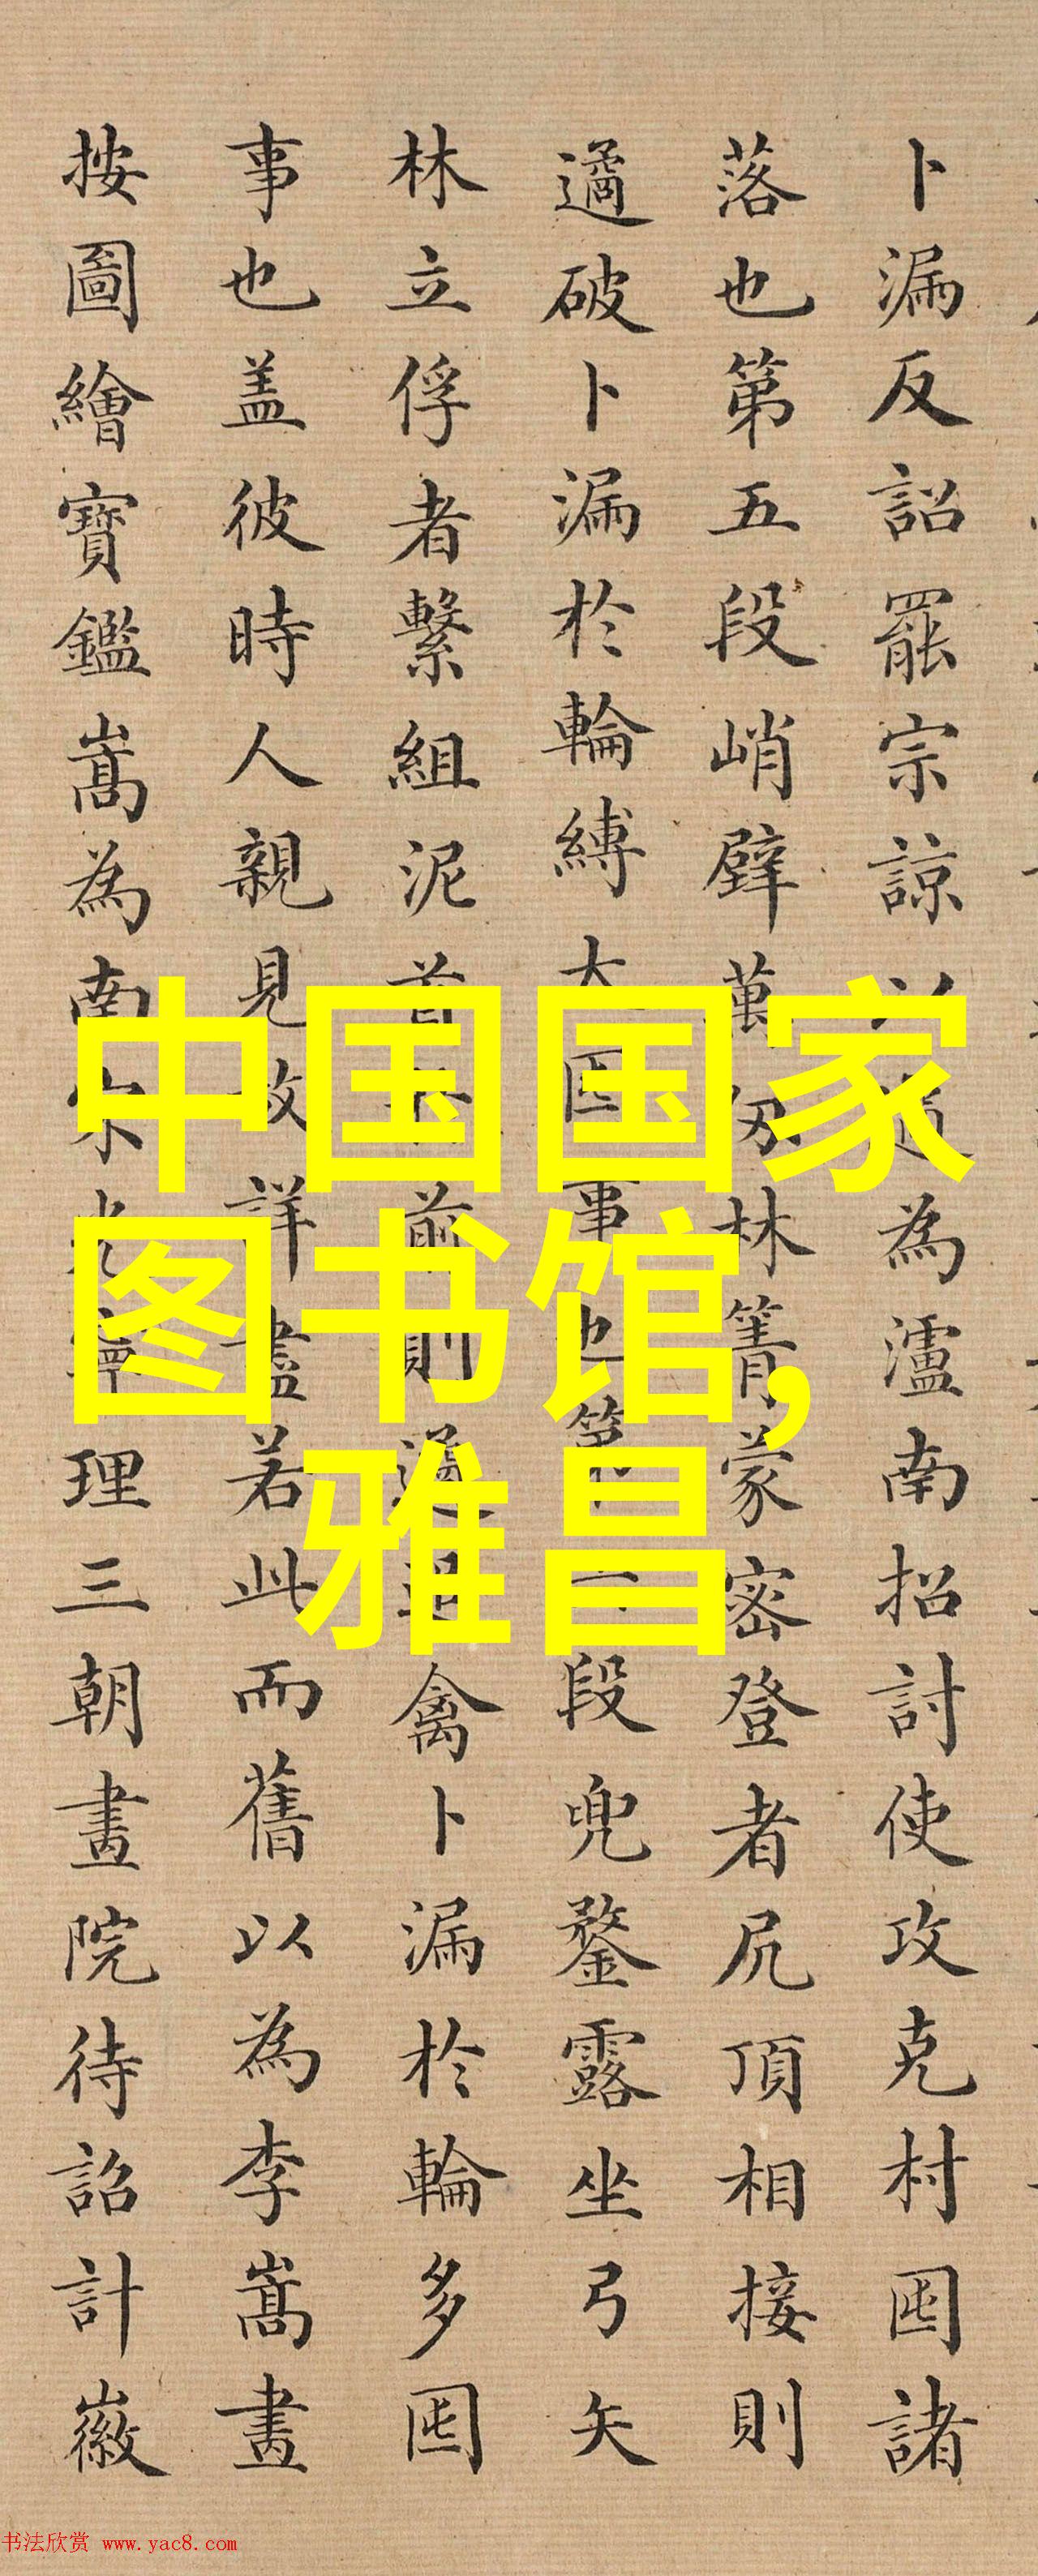 卜漏反詔罷宗諒以遹為瀘南招討使攻克村囤諸
落也第五段峭壁萬仞林箐蒙密登者尻頂相接則
遹破卜漏於輪縛大囤事也第段兜鍪露坐弓矢
林立俘者繫組泥首前則遹追禽卜漏於輪多囤
事也盖彼時人親見故詳盡若此而舊以為李嵩畫
按圖繪寶鑑嵩為南宋光寧理三朝畫院待詔計徽
中国国家
图书馆,
雅昌
书法欣赏 www.yac8.com